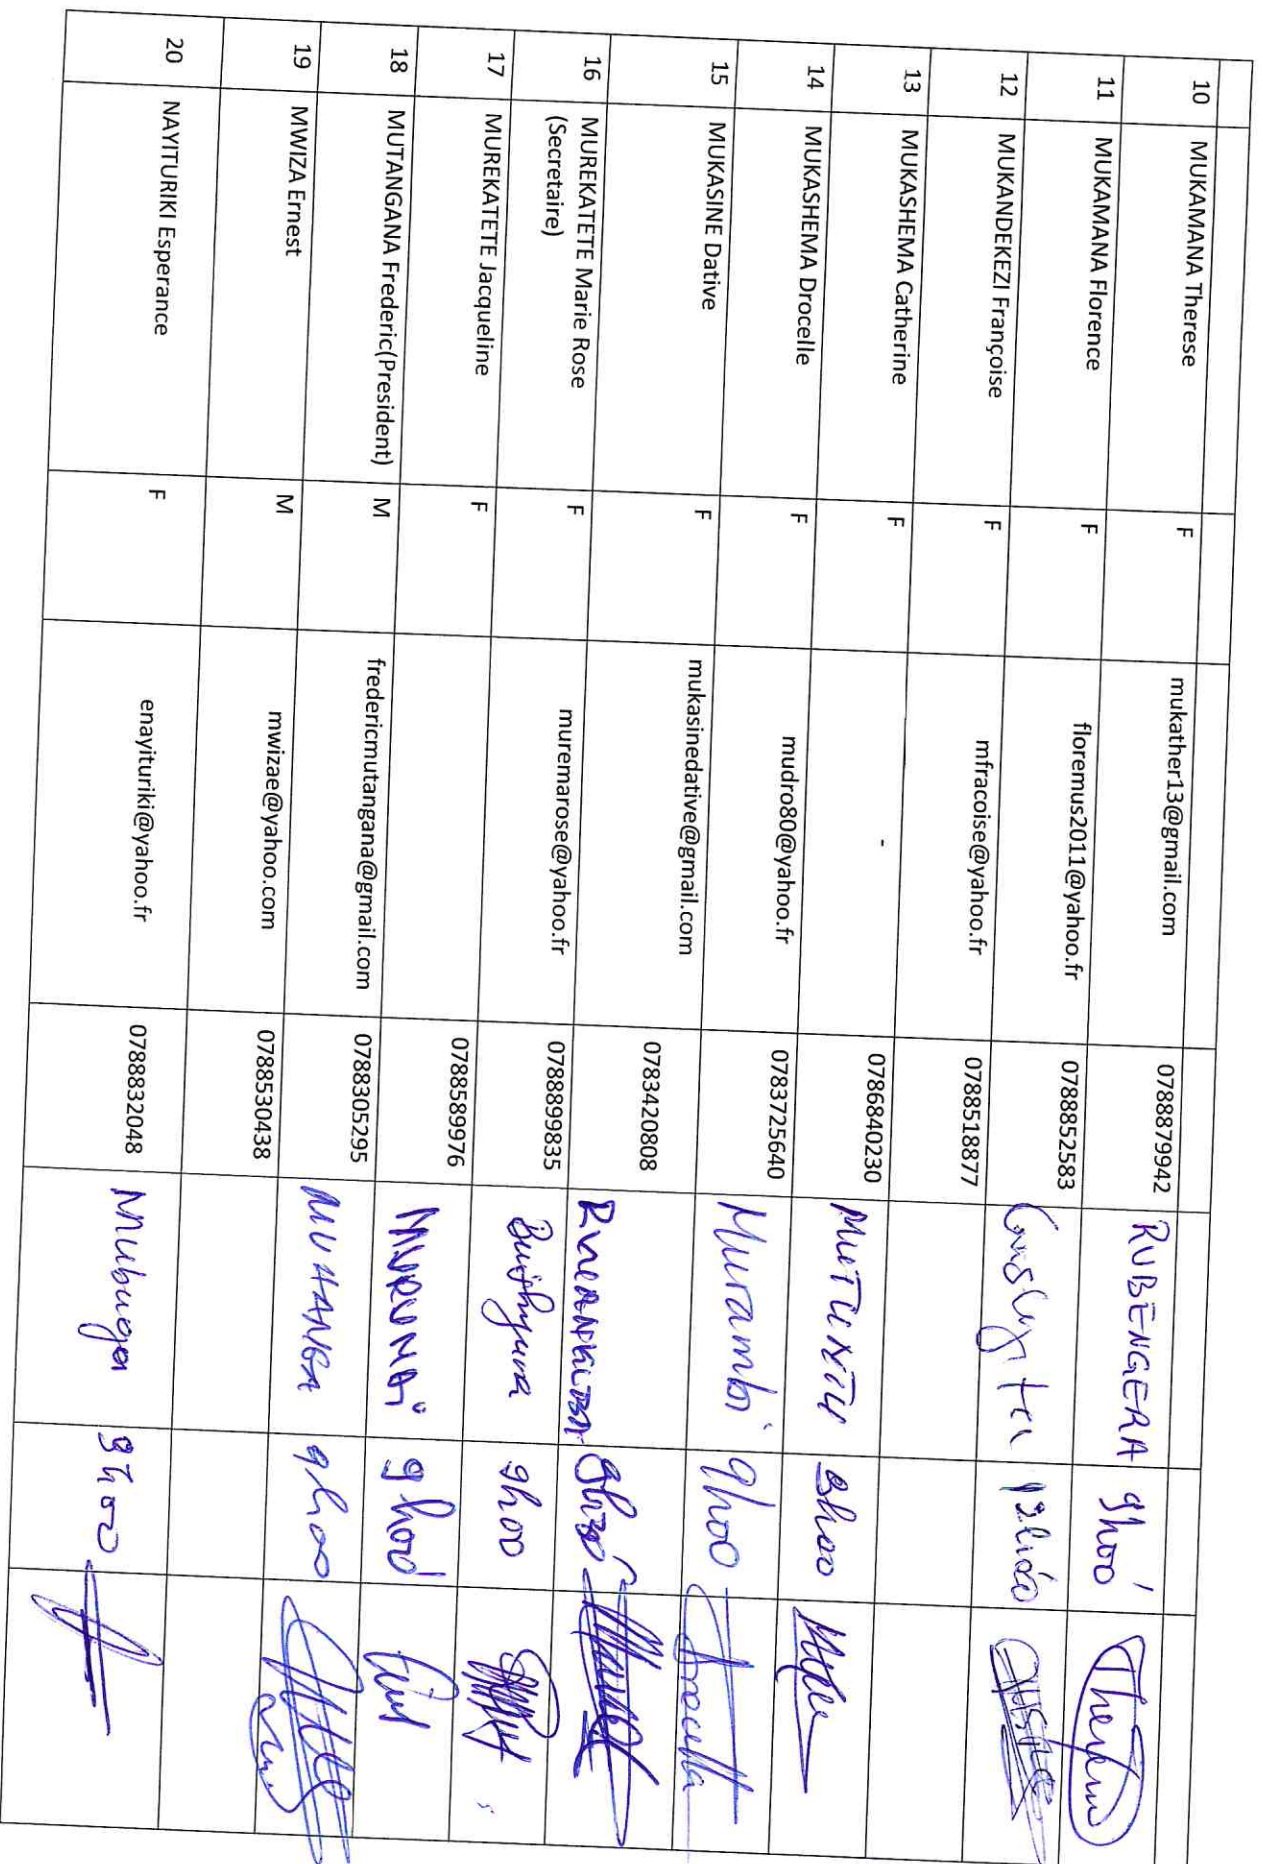 10 MUKAMANA Therese F mukather13@gmail.com 0788879942 RUBENGERA 9h00
11 MUKAMANA Florence F floremus2011@yahoo.fr 0788852583
12 MUKANDEKEZI Françoise F mfracoise@yahoo.fr 0788518877
13 MUKASHEMA Catherine F - 0786840230
14 MUKASHEMA Drocelle F mudro80@yahoo.fr 0783725640 Murambi 9h00
15 MUKASINE Dative F mukasinedative@gmail.com 0783420808
16 MUREKATETE Marie Rose F muremarose@yahoo.fr 0788899835 9h00
(Secretaire)
17 MUREKATETE Jacqueline F 0788589976 9h00
18 MUTANGANA Frederic(President) M fredericmutangana@gmail.com 0788305295 MUHANGA 9h00
19 MWIZA Ernest M mwizae@yahoo.com 0788530438
20 NAYITURIKI Esperance F enayituriki@yahoo.fr 0788832048 Mubuga 9h00